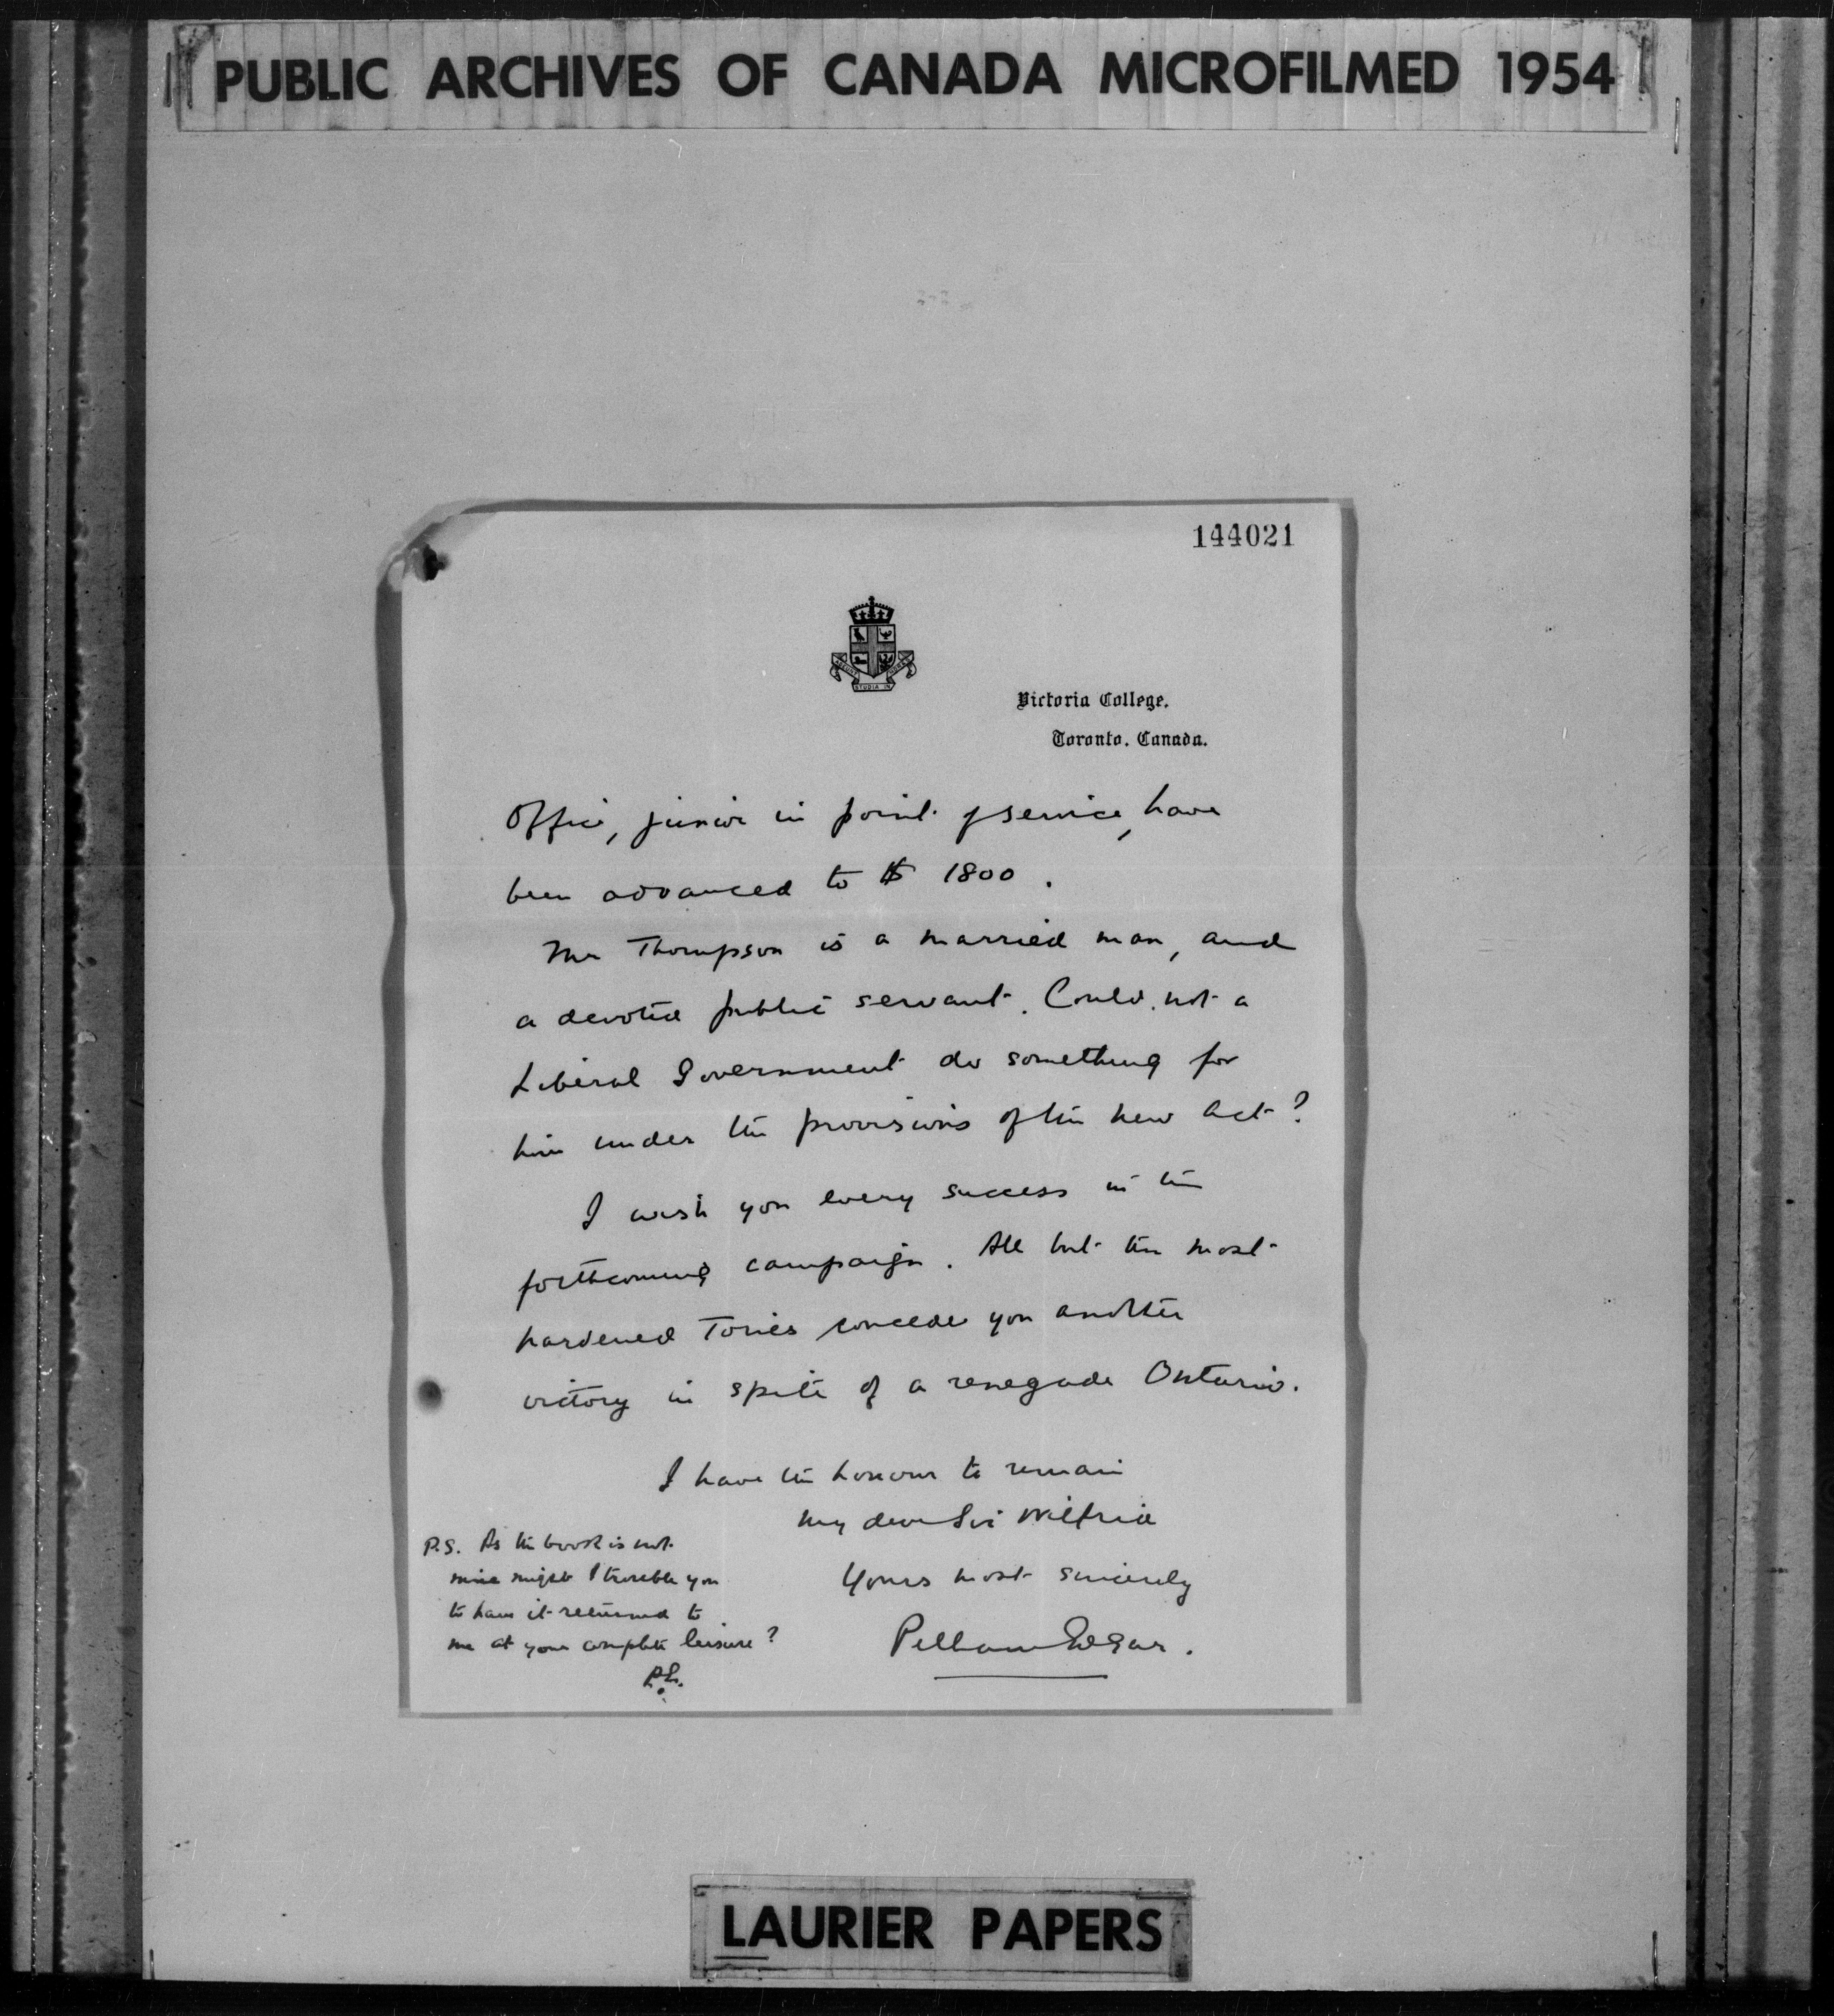 PUBLIC ARCHIVES OF CANADA MICROFILMED 1954
144021
STUDIA IN
Victoria College,
Toronto, Canada.
Office, junior in point of service, have
been advanced to $ 1800.
Mr Thompson is a married man, and
a devoted public servant. Could not a
Liberal Government do something for
him under the provisions of the new Act?
I wish you every success in the
forthcoming campaign. All but the most
hardened Tories concede you another
victory in spite of a renegade Ontario.
I have the honour to remain
my dear Sir Wilfrid
Yours most sincerely
Pelham Edgar.
P.S. As the book is not
mine might I trouble you
to have it returned to
me at your complete leisure?
P.E.
LAURIER PAPERS